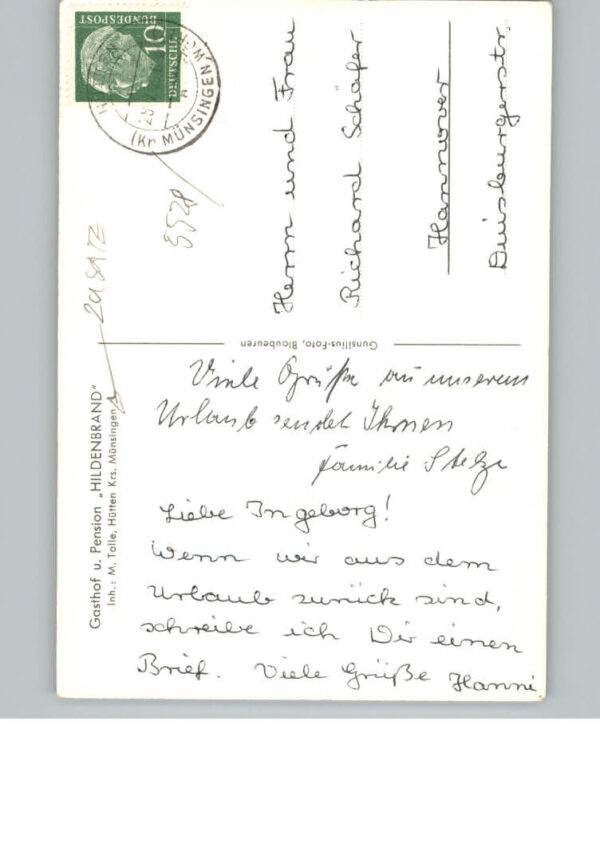 Gasthof u. Pension „HILDENBRAND"
Inh.: M. Tolle, Hütten Krs. Münsingen
Viele Grüße aus unserem
Urlaub sendet Ihnen
Familie Stelze
Liebe Ingeborg!
Wenn wir aus dem
Urlaub zurück sind,
schreibe ich Dir einen
Brief. Viele Grüße Hanni
Gunsilius-Foto, Blaubeuren
DEUTSCHE
BUNDESPOST
10
(Kr. MÜNSINGEN
Herrn und Frau
Richard Schäfer
Hannover
Duisburgerstr.